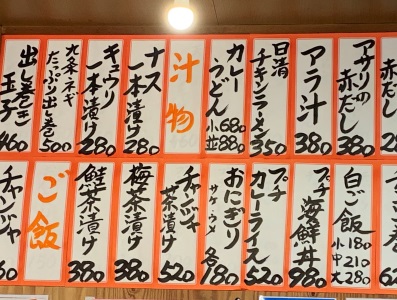 赤だし
アサリの
赤だし
380
アラ汁
380
日清
チキンラーメン
350
カレー
うどん
小680
並880
汁物
ナス
一本漬け
280
キュウリ
一本漬け
280
九条ネギ
たっぷり出し巻
500
出し巻き
玉子
460
白ご飯
小180
中210
大280
プチ
海鮮丼
980
プチ
カレーライス
620
おにぎり
サケ・ウメ
各180
チャンジャ
茶漬け
520
梅茶漬け
380
鮭茶漬け
380
ご飯
チャンジャ